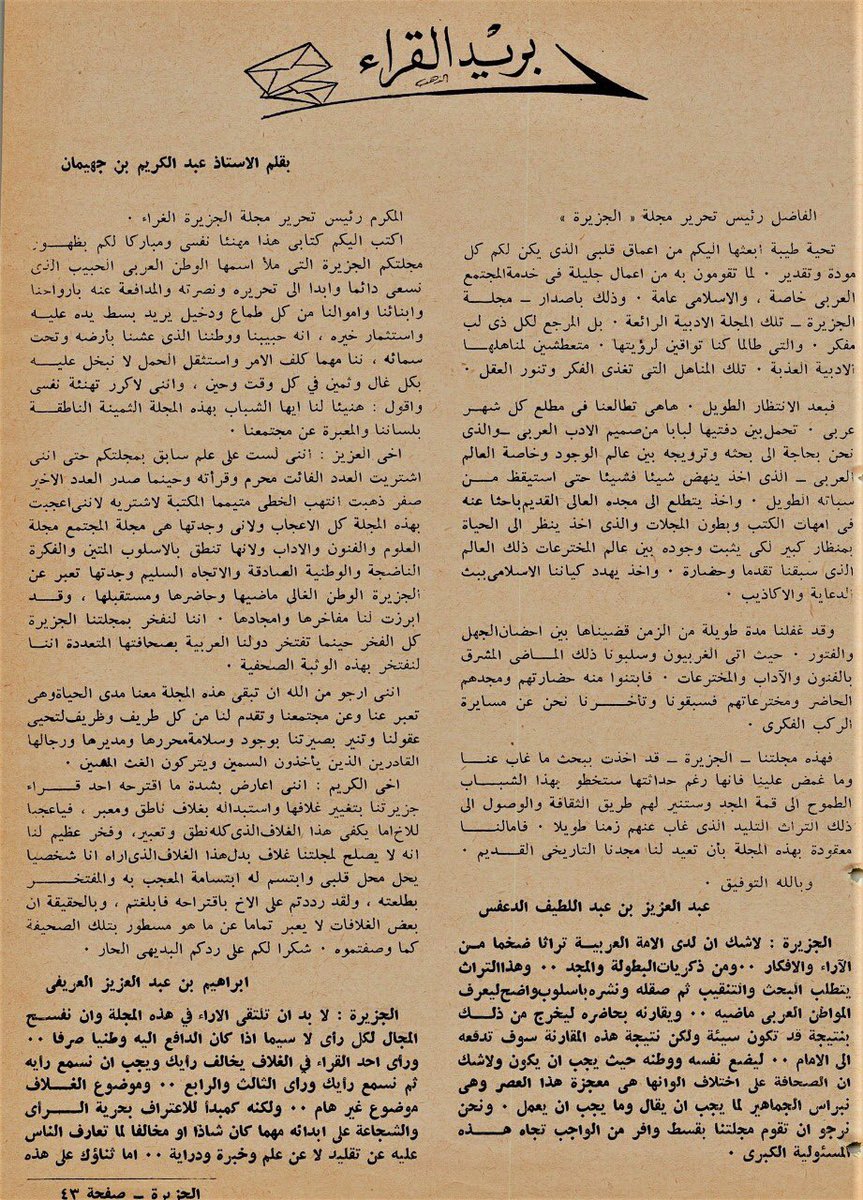 بريد القراء
بقلم الاستاذ عبد الكريم بن جهيمان
الفاضل رئيس تحرير مجلة « الجزيرة »
تحية طيبة ابعثها اليكم من اعماق قلبى الذى يكن لكم كل
مودة وتقدير ٠ لما تقومون به من اعمال جليلة فى خدمة المجتمع
العربى خاصة ، والاسلامى عامة ٠ وذلك باصدار ــ مجلـــة
الجزيرة ــ تلك المجلة الادبية الرائعة ٠ بل المرجع لكل ذى لب
مفكر ٠ والتى طالما كنا تواقين لرؤيتها ٠ متعطشين لمناهلهـا
الادبية العذبة ٠ تلك المناهل التى تغذى الفكر وتنور العقل ٠
فبعد الانتظار الطويل ٠ هاهى تطالعنا فى مطلع كل شهـر
عربى ٠ تحمل بين دفتيها لبابا من صميم الادب العربى ــ والذى
نحن بحاجة الى بحثه وترويجه بين عالم الوجود وخاصة العالم
العربى ــ الذى اخذ ينهض شيئا فشيئا حتى استيقظ مـــن
سباته الطويل ٠ واخذ يتطلع الى مجده العالى القديم باحثا عنه
فى امهات الكتب وبطون المجلات والذى اخذ ينظر الى الحياة
بمنظار كبير لكى يثبت وجوده بين عالم المخترعات ذلك العالم
الذى سبقنا تقدما وحضارة ٠ واخذ يهدد كياننا الاسلامى ببث
الدعاية والاكاذيب ٠
وقد غفلنا مدة طويلة من الزمن قضيناها بين احضان الجهل
والفتور ٠ حيث اتى الغربيون وسلبونا ذلك المـــاضى المشرق
بالفنون والآداب والمخترعات ٠ فابتنوا منه حضارتهم ومجدهم
الحاضر ومخترعاتهم فسبقونا وتأخـــرنا نحن عن مسايرة
الركب الفكرى ٠
فهذه مجلتنا ــ الجزيرة ــ قد اخذت ببحث ما غاب عنـــا
وما غمض علينا فانها رغم حداثتها ستخطو بهذا الشبـــاب
الطموح الى قمة المجد وستنير لهم طريق الثقافة والوصول الى
ذلك التراث التليد الذى غاب عنهم زمنا طويلا ٠ فامالنـــا
معقودة بهذه المجلة بأن تعيد لنا مجدنا التاريخى القـــديم ٠
وبالله التوفيق ٠
عبد العزيز بن عبد اللطيف الدعفس
الجزيرة : لاشك ان لدى الامة العربيـة تراثا ضخما مــن
الآراء والافكار ٠٠ ومن ذكريات البطولة والمجد ٠٠ وهذا التراث
يتطلب البحث والتنقيب ثم صقله ونشره باسلوب واضح ليعرف
المواطن العربى ماضيه ٠٠ ويقارنه بحاضره ليخرج من ذلـــك
بنتيجة قد تكون سيئة ولكن نتيجة هذه المقارنة سوف تدفعه
الى الامام ٠٠ ليضع نفسه ووطنه حيث يجب ان يكون ولاشك
ان الصحافة على اختلاف الوانها هى معجزة هذا العصر وهى
نبراس الجماهير لما يجب ان يقال وما يجب ان يعمل ٠ ونحن
نرجو ان تقوم مجلتنا بقسط وافر من الواجب تجاه هـــذه
المسئولية الكبرى ٠
المكرم رئيس تحرير مجلة الجزيرة الغراء ٠
اكتب اليكم كتابى هذا مهنئا نفسى ومباركا لكم بظهـور
مجلتكم الجزيرة التى ملأ اسمها الوطن العربى الحبيب الذى
نسعى دائما وابدا الى تحريره ونصرته والمدافعة عنه بارواحنا
وابنائنا واموالنا من كل طماع ودخيل يريد بسط يده عليـه
واستثمار خيره ، انه حبيبنا ووطننا الذى عشنا بأرضه وتحت
سمائه ، ننا مهما كلف الامر واستثقل الحمل لا نبخل عليـــه
بكل غال وثمين في كل وقت وحين ، واننى لاكرر تهنئة نفسى
واقول : هنيئا لنا ايها الشباب بهذه المجلة الثمينة الناطقـة
بلساننا والمعبرة عن مجتمعنا ٠
اخى العزيز : اننى لست على علم سابق بمجلتكم حتى اننى
اشتريت العدد الفائت محرم وقرأته وحينما صدر العدد الاخير
صفر ذهبت انتهب الخطى متيمما المكتبة لاشتريه لاننى اعجبت
بهذه المجلة كل الاعجاب ولانى وجدتها هى مجلة المجتمع مجلة
العلوم والفنون والاداب ولانها تنطق بالاسلوب المتين والفكرة
الناضجة والوطنية الصادقة والاتجاه السليم وجدتها تعبر عن
الجزيرة الوطن الغالى ماضيها وحاضرها ومستقبلها ، وقـــد
ابرزت لنا مفاخرها وامجادها ٠ اننا لنفخر بمجلتنا الجزيرة
كل الفخر حينما تفتخر دولنا العربية بصحافتها المتعددة اننـا
لنفتخر بهذه الوثبة الصحفية ٠
اننى ارجو من الله ان تبقى هذه المجلة معنا مدى الحياة وهى
تعبر عنا وعن مجتمعنا وتقدم لنا من كل طريف وظريف لتحيى
عقولنا وتنير بصيرتنا بوجود وسلامة محررها ومديرها ورجالها
القادرين الذين يأخذون السمين ويتركون الغث
اخى الكريم : اننى اعارض بشدة ما اقترحه احد قـــراء
جزيرتنا بتغيير غلافها واستبداله بغلاف ناطق ومعبر ، فياعجبا
للاخ اما يكفى هذا الغلاف الذى كله نطق وتعبير، وفخر عظيم لنا
انه لا يصلح لمجلتنا غلاف بدل هذا الغلاف الذى اراه انا شخصيا
يحل محل قلبى وابتسم له ابتسامة المعجب به والمفتخـــر
بطلعته ، ولقد رددتم على الاخ باقتراحه فابلغتم ، وبالحقيقة ان
بعض الغلافات لا يعبر تماما عن ما هو مسطور بتلك الصحيفة
كما وصفتموه ٠ شكرا لكم على ردكم البديهى الحار ٠
ابراهيم بن عبد العزيز العريفى
الجزيرة : لا بد ان تلتقى الاراء في هذه المجلة وان نفســح
المجال لكل رأى لا سيما اذا كان الدافع اليه وطنيا صرفا ٠٠
ورأى احد القراء في الغلاف يخالف رأيك ويجب ان نسمع رأيه
ثم نسمع رأيك ورأى الثالث والرابع ٠٠ وموضوع الغـــلاف
موضوع غير هام ٠٠ ولكنه كمبدأ للاعتراف بحرية الـــرأى
والشجاعة على ابدائه مهما كان شاذا او مخالفا لما تعارف الناس
عليه عن تقليد لا عن علم وخبرة ودراية ٠٠ اما ثناؤك على هذه
الجزيرة ــ صفحة ٤٣